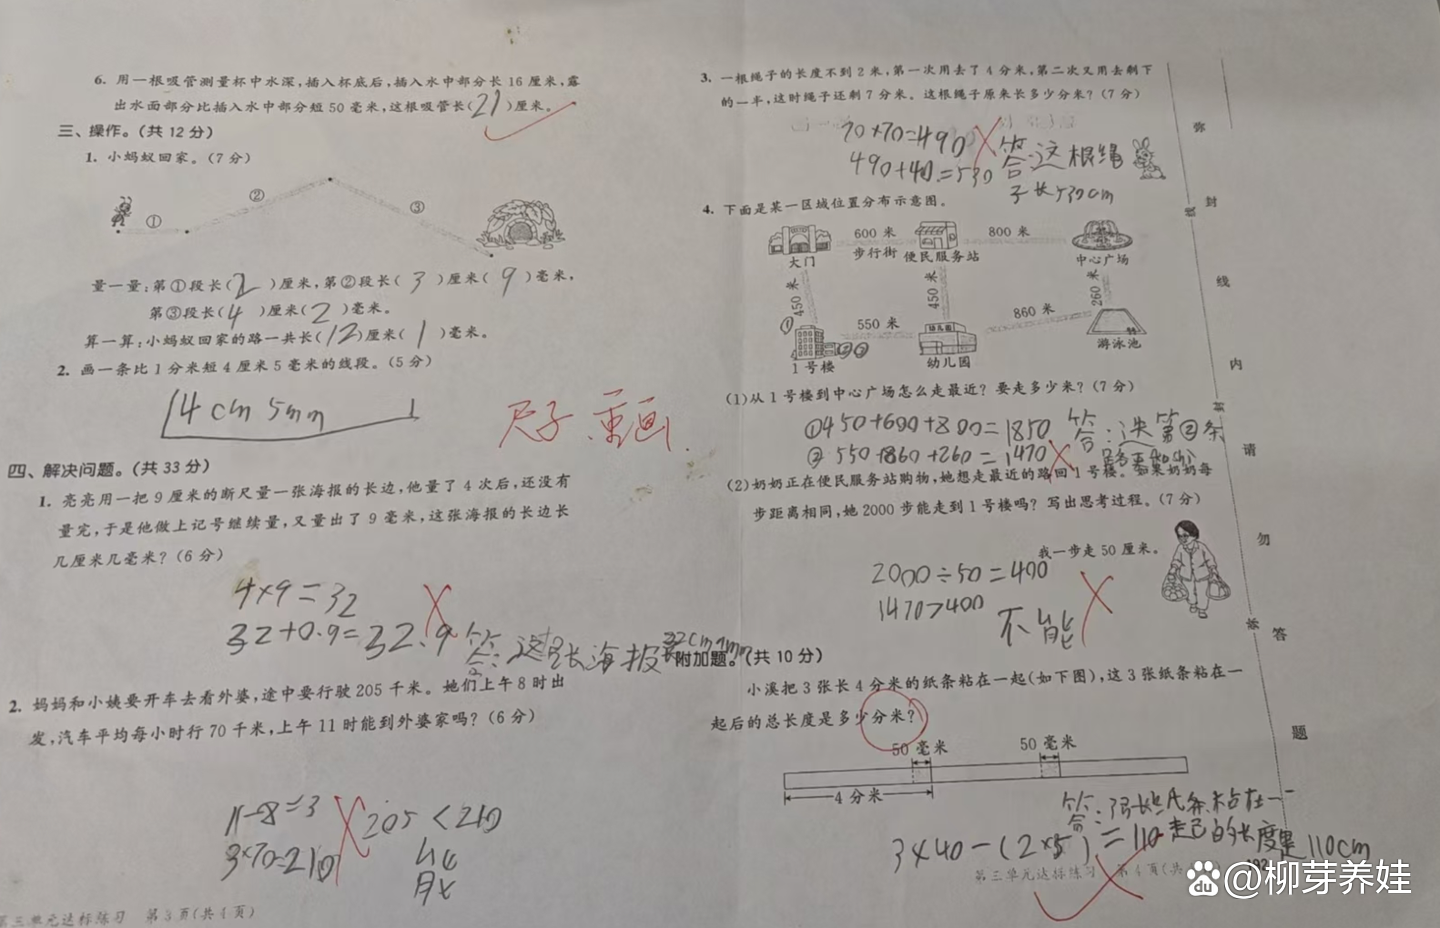 6. 用一根吸管测量杯中水深,插入杯底后,插入水中部分长16厘米,露
出水面部分比插入水中部分短50毫米,这根吸管长(21)厘米。
三、操作。(共12分)
1. 小蚂蚁回家。(7分)
① ② ③
量一量:第①段长(2)厘米,第②段长(3)厘米(9)毫米,
第③段长(4)厘米(2)毫米。
算一算:小蚂蚁回家的路一共长(12)厘米(1)毫米。
2. 画一条比1分米短4厘米5毫米的线段。(5分)
4cm 5mm
尺子 重画
四、解决问题。(共33分)
1. 亮亮用一把9厘米的断尺量一张海报的长边,他量了4次后,还没有
量完,于是他做上记号继续量,又量出了9毫米,这张海报的长边长
几厘米几毫米?(6分)
4×9=32
32+0.9=32.9
答:这张海报长32cm9mm
2. 妈妈和小姨要开车去看外婆,途中要行驶205千米。她们上午8时出
发,汽车平均每小时行70千米,上午11时能到外婆家吗?(6分)
11-8=3
3×70=210
205<210
能
第三单元达标练习 第3页(共4页)
3. 一根绳子的长度不到2米,第一次用去了4分米,第二次又用去剩下
的一半,这时绳子还剩7分米。这根绳子原来长多少分米?(7分)
70×70=490
490+40=530
答:这根绳
子长530cm
4. 下面是某一区域位置分布示意图。
600米 800米
大门 步行街 便民服务站 中心广场
450米 450米 260米
① 550米 幼儿园 860米
1号楼 ②③ 幼儿园 游泳池
(1)从1号楼到中心广场怎么走最近?要走多少米?(7分)
①450+600+800=1850
② 550+860+260=1470
答:选第②条
(2)奶奶正在便民服务站购物,她想走最近的路回1号楼。如果奶奶每
步距离相同,她2000步能走到1号楼吗?写出思考过程。(7分)
我一步走50厘米。
2000÷50=400
1470>400
不能
附加题。(共10分)
小溪把3张长4分米的纸条粘在一起(如下图),这3张纸条粘在一
起后的总长度是多少分米?
50毫米 50毫米
4分米
3×40-(2×5)=110
起后的长度是110cm
第三单元达标练习 第4页(共
弥 封 线 内 请 勿 答 题
Bai du @柳芽养娃